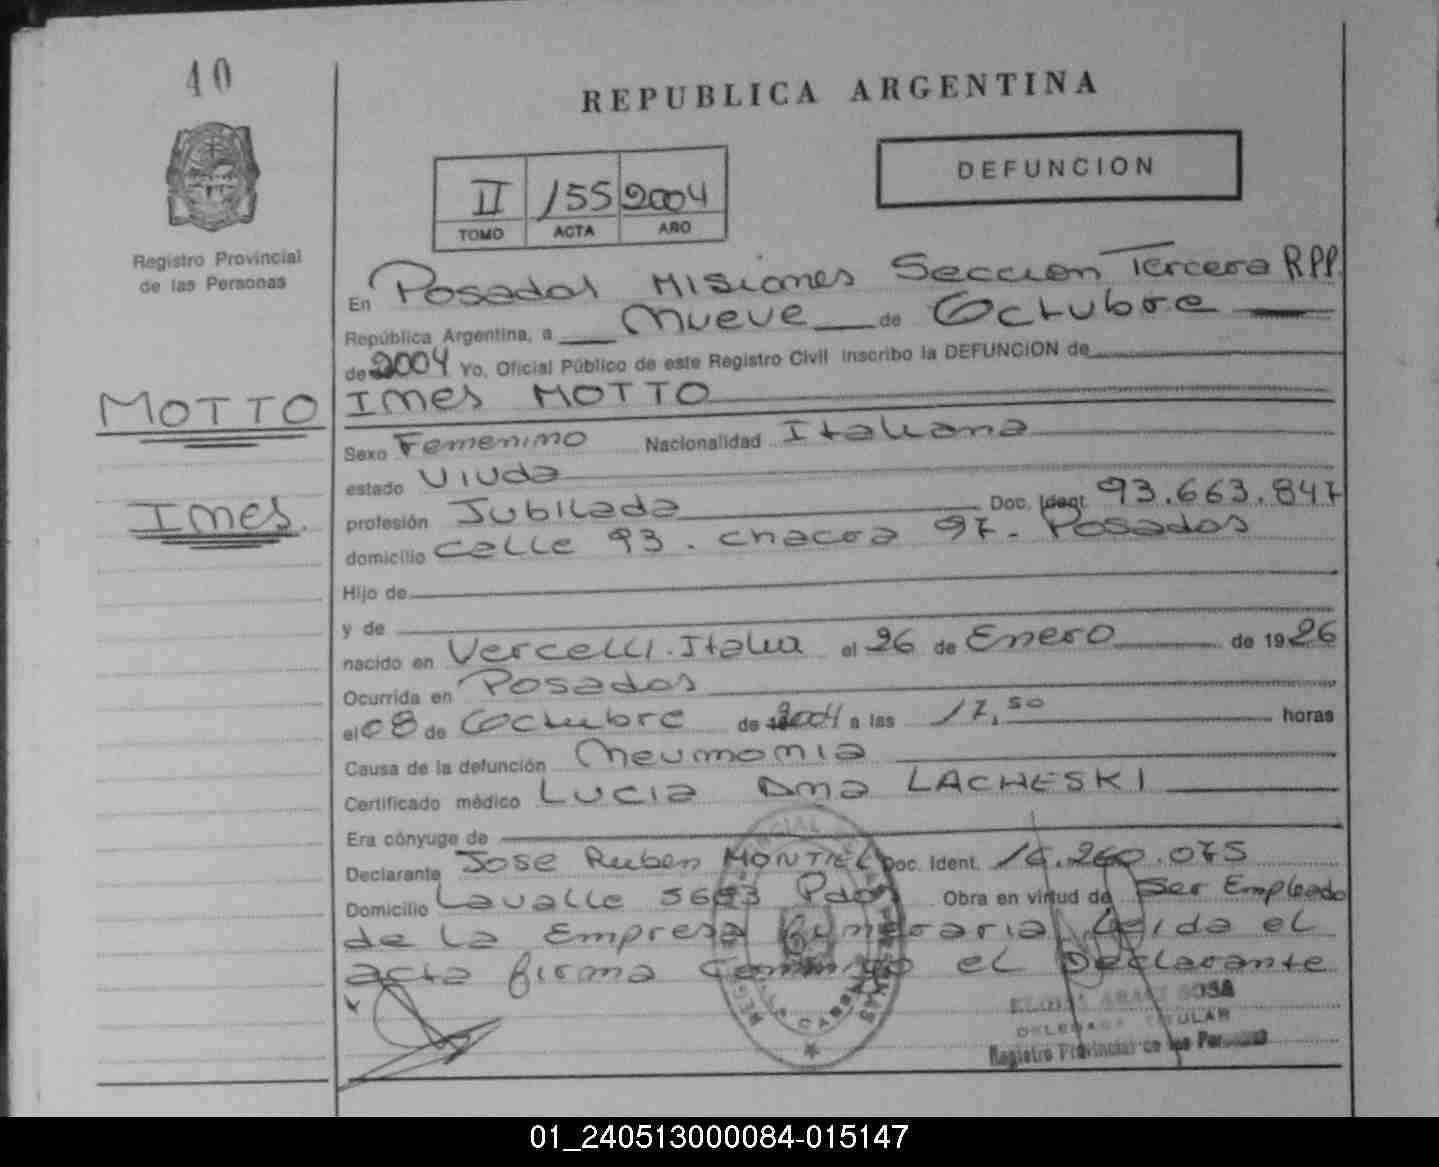 40
REPUBLICA ARGENTINA
DEFUNCION
II 155 2004
TOMO ACTA AÑO
Registro Provincial
de las Personas
En Posadas Misiones Seccion Tercera RPP.
República Argentina, a Nueve de Octubre
de 2004 Yo, Oficial Público de este Registro Civil inscribo la DEFUNCION de
MOTTO
Ines MOTTO
Sexo Femenino Nacionalidad Italiana
estado Viuda
Ines.
profesión Jubilada Doc. Ident. 93.663.847
domicilio calle 93. chacra 97. Posadas
Hijo de
y de
nacido en Vercelli. Italia el 26 de Enero de 1926
Ocurrida en Posadas
el 08 de Octubre de 2004 a las 17,50 horas
Causa de la defunción Neumonia
Certificado médico Lucia Ana LACHESKI
Era cónyuge de
Declarante Jose Ruben MONTIEL Doc. Ident. 260.075
Domicilio Lavalle 5693 Pdas Obra en virtud de Ser Empleado
de la Empresa Funeraria Leida el
acta firma Conmigo el Declarante
SOSA
DELEGADA TITULAR
Registro Provincial de las Personas
01_240513000084-015147